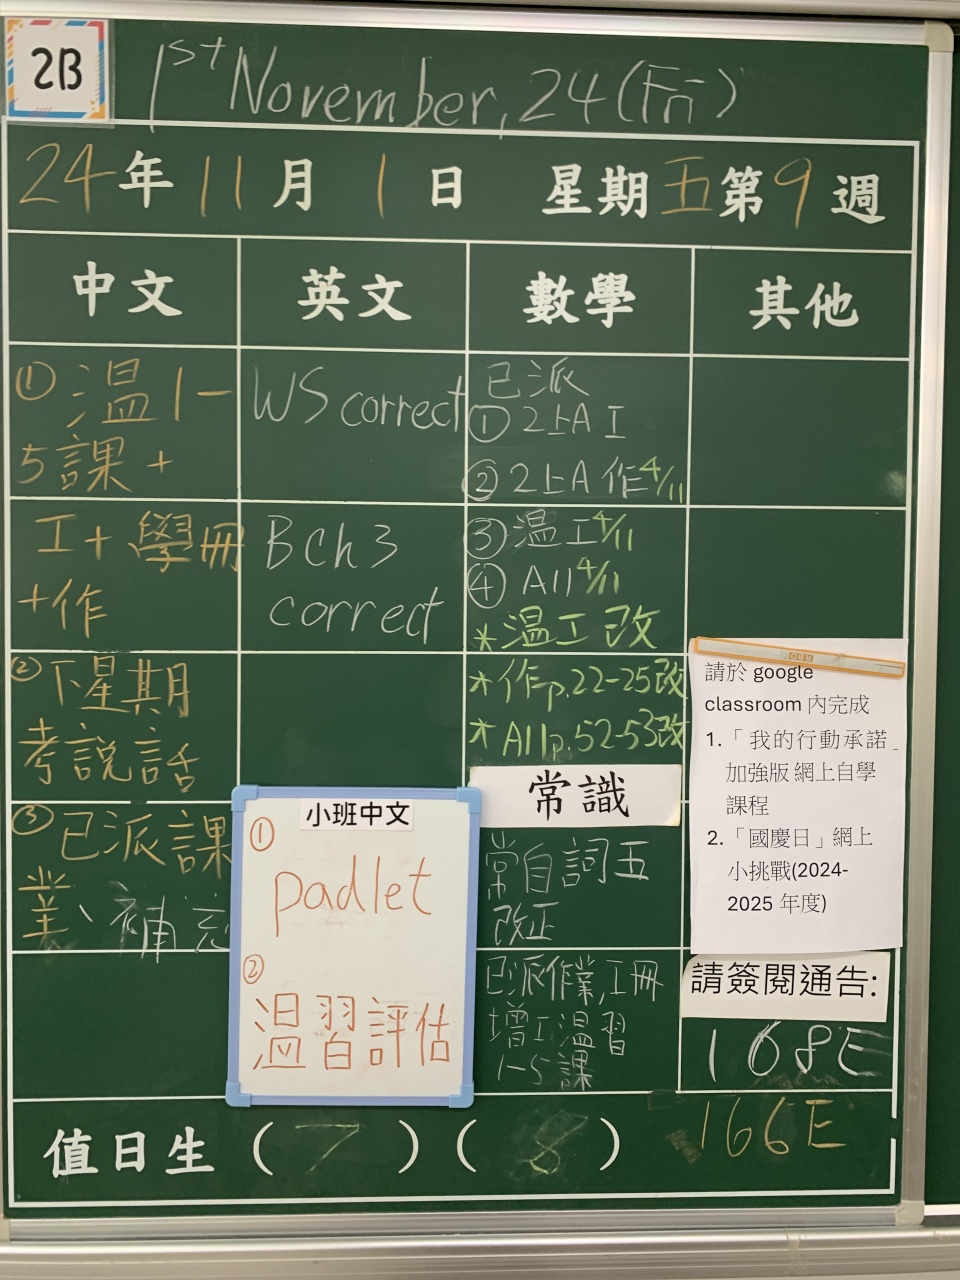 2B
1st November, 24 (Fri)
24年 11月 1日 星期五第9週
中文
英文
數學
其他
①溫1-
5課+
工+學冊
+作
②下星期
考說話
③已派課
業、補充
WS correct
Bch3
correct
已派
①2上A工
②2上A作4/11
③溫工4/11
④A114/11
*溫工改
*作p.22-25改
*A11p.52-53改
常識
常自詞五
改正
已派作業,工冊
增工溫習
1-5課
小班中文
①
padlet
②
溫習評估
請於 google
classroom 內完成
1.「我的行動承諾_
加強版 網上自學
課程
2.「國慶日」網上
小挑戰(2024-
2025 年度)
請簽閱通告:
168E
166E
值日生 ( 7 ) ( 8 )